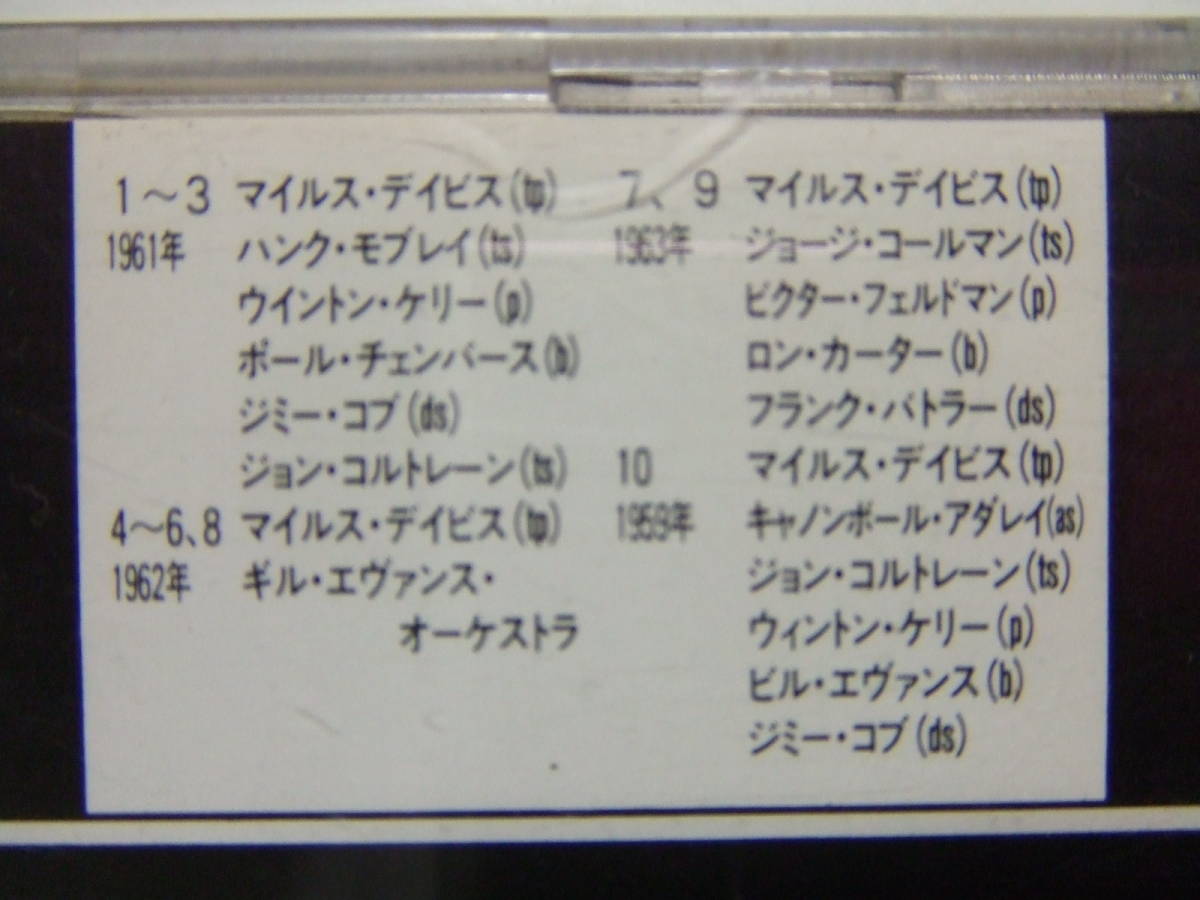 1～3 マイルス・デイビス(tp)
1961年 ハンク・モブレイ(ts)
ウイントン・ケリー(p)
ポール・チェンバース(b)
ジミー・コブ(ds)
ジョン・コルトレーン(ts)
4～6、8 マイルス・デイビス(tp)
1962年 ギル・エヴァンス・
オーケストラ
7、9 マイルス・デイビス(tp)
1963年 ジョージ・コールマン(ts)
ビクター・フェルドマン(p)
ロン・カーター(b)
フランク・バトラー(ds)
10 マイルス・デイビス(tp)
1959年 キャノンボール・アダレイ(as)
ジョン・コルトレーン(ts)
ウィントン・ケリー(p)
ビル・エヴァンス(b)
ジミー・コブ(ds)